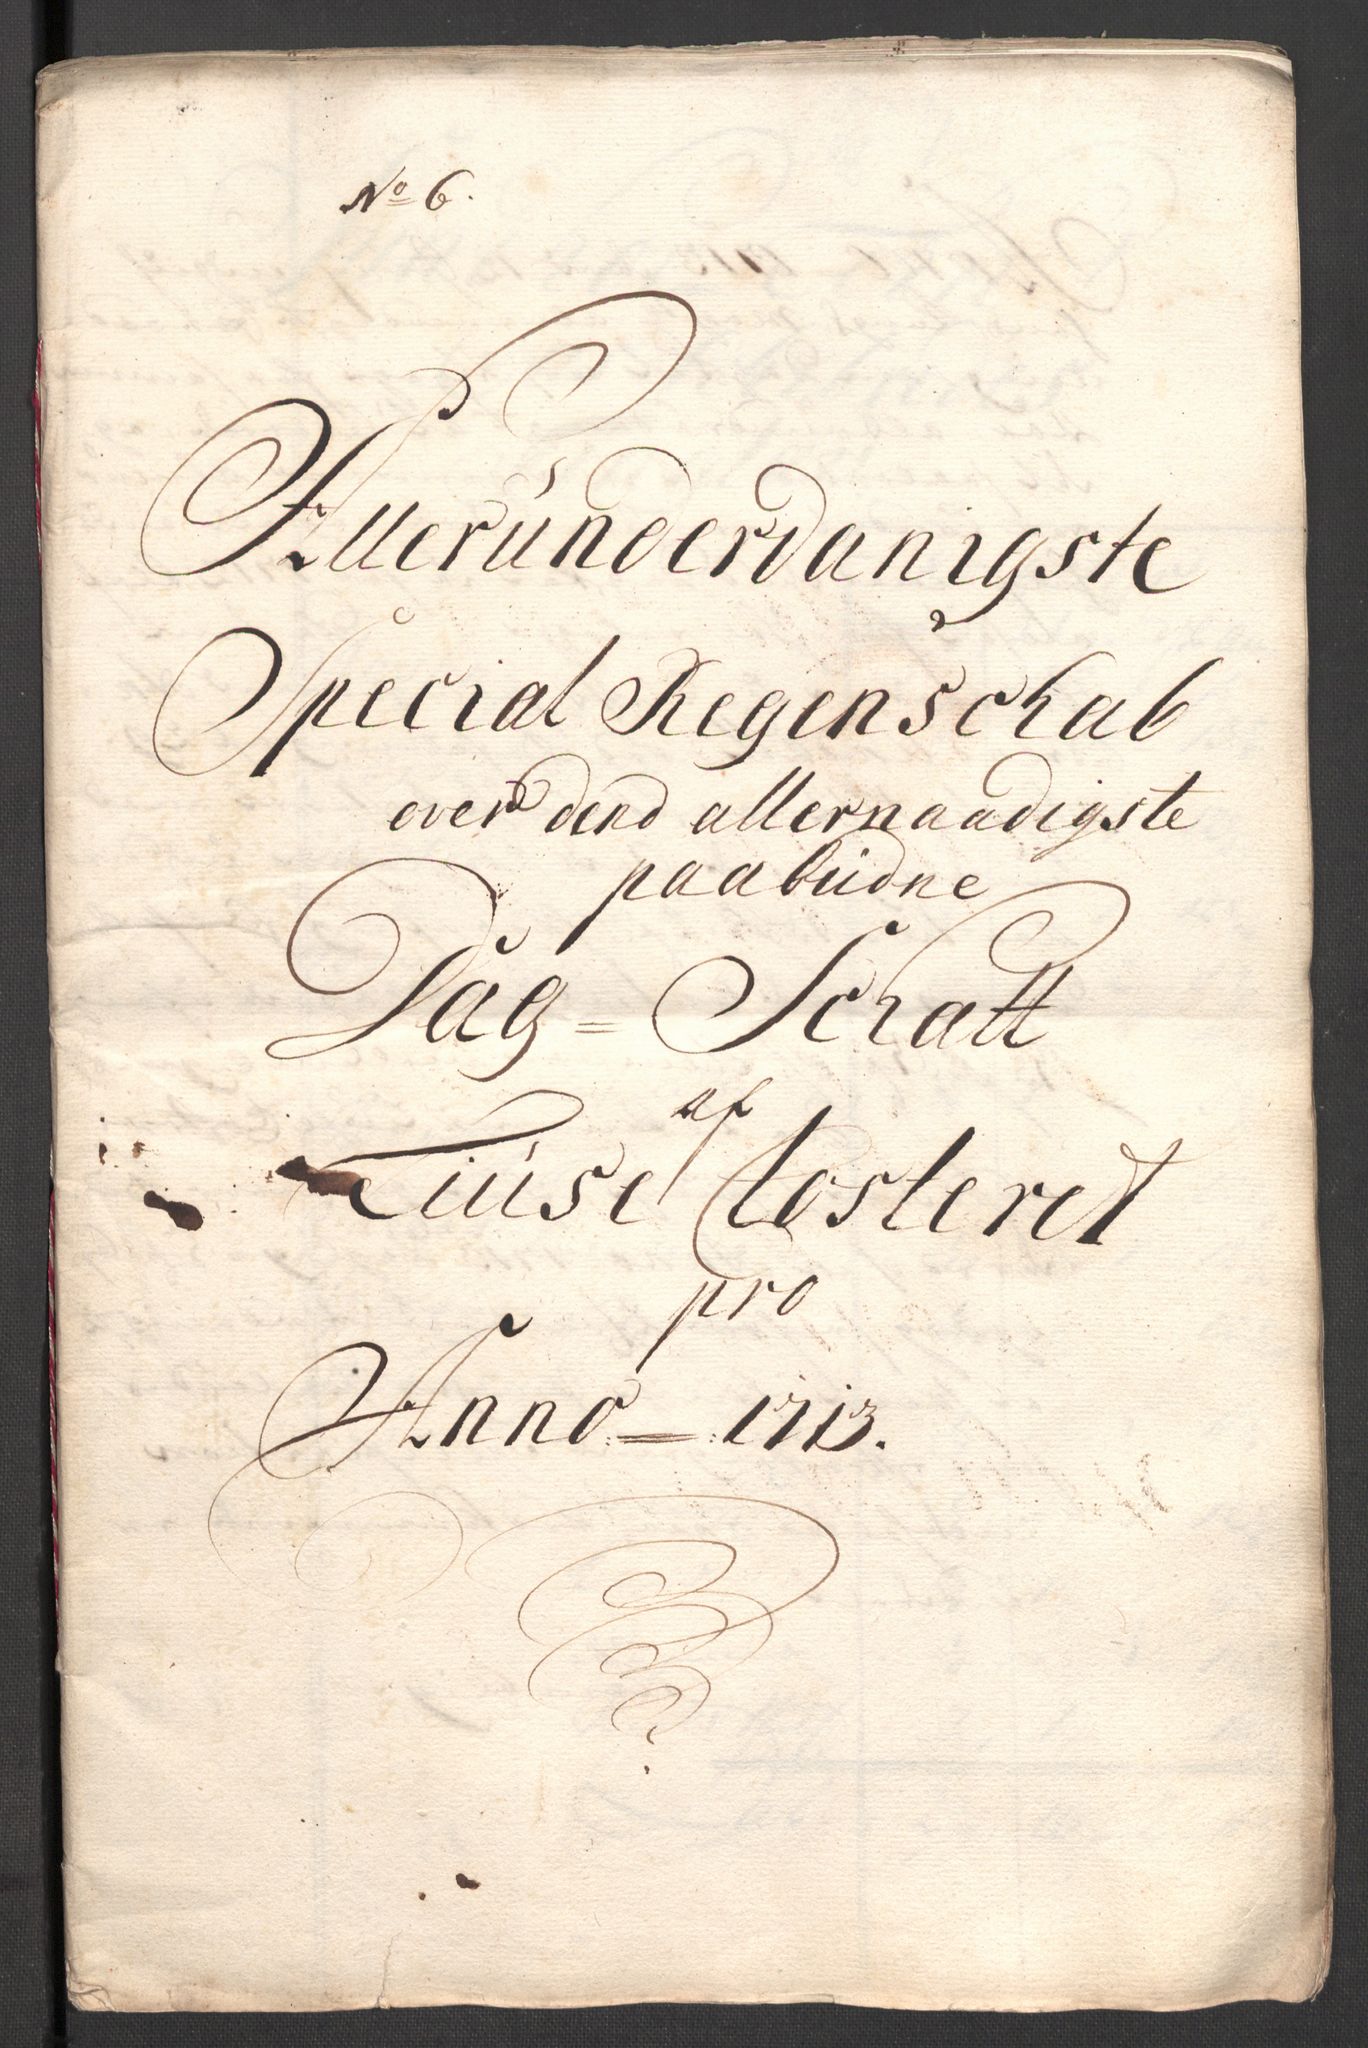 No 6.
Allerunderdanigste
Special Regenschab
over dend allernaadigste
paabudne
Dag = Schatt
af
Tuse Closteret
pro
Anno = 1713.